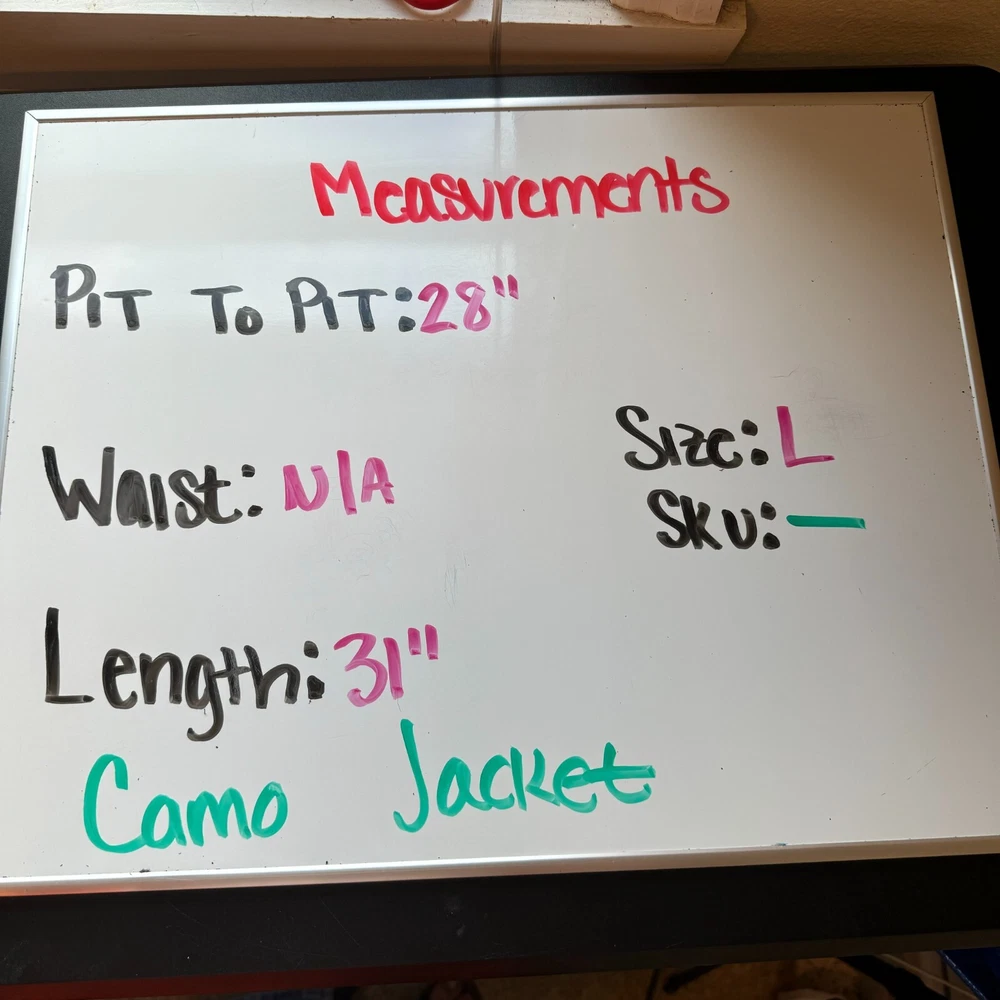 Measurements
PIT TO PIT: 28"
Waist: N/A
Size: L
SKU: —
Length: 31"
Camo Jacket